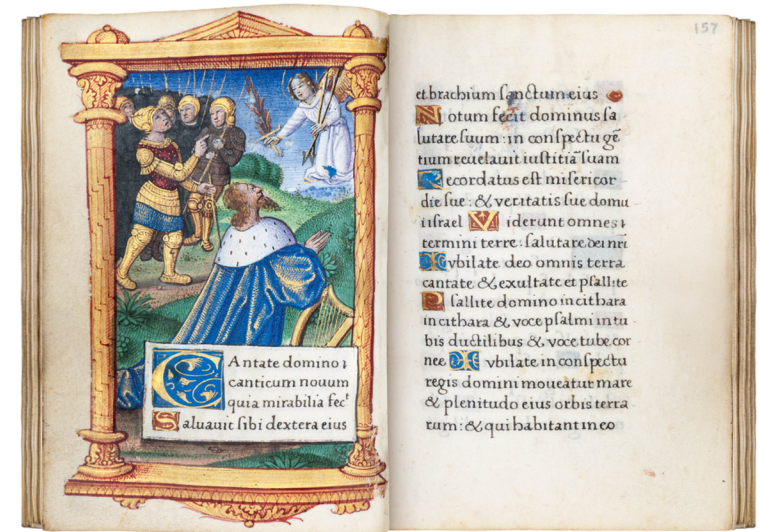 Cantate domino ⁊
canticum nouum
quia mirabilia fecᵗ
Saluauit sibi dextera eius
157
et brachium sanctum eius
Notum fecit dominus sa
lutare suum : in conspectu gẽ
tium reuelauit iustitiã suam
Recordatus est misericor
die sue : & veritatis sue domu
i israel Viderunt omnes ⁊
termini terre : salutare dei nr̃i
Iubilate deo omnis terra
cantate & exultate et psallite
Psallite domino in cithara
in cithara & voce psalmi in tu
bis ductilibus & voce tube cor
nee Iubilate in conspectu
regis domini moueatur mare
& plenitudo eius orbis terra
rum : & qui habitant in eo